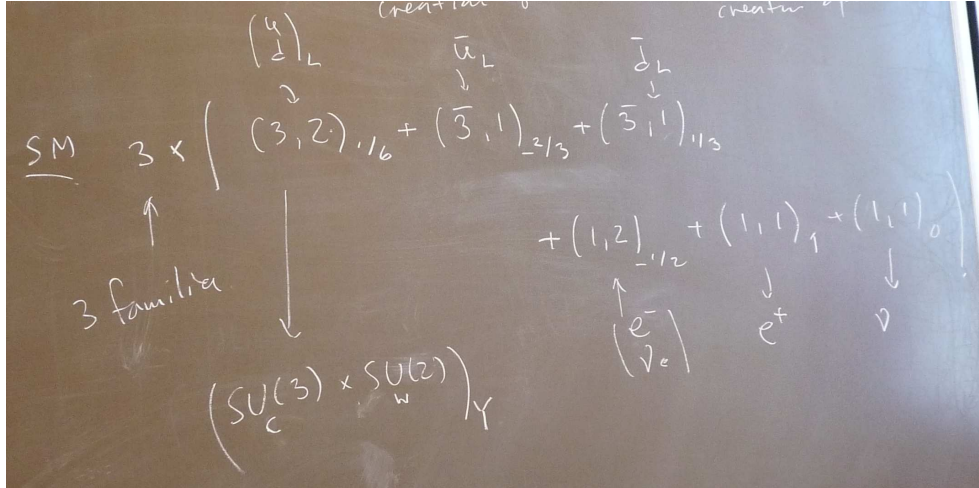 (u d)_L ū_L d̄_L
SM 3 × ( (3,2)_{1/6} + (3̄,1)_{-2/3} + (3̄,1)_{1/3}
+ (1,2)_{-1/2} + (1,1)_1 + (1,1)_0 )
3 familia
(e⁻ ν_e) e⁺ ν
(SU(3)_C × SU(2)_W)_Y